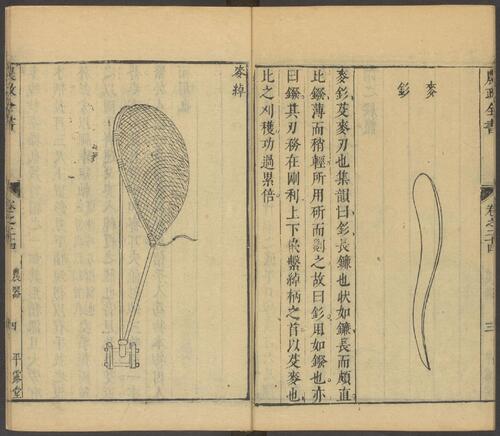 農政全書
卷之二十四
三
麥釤
麥釤芟麥刃也集韻曰釤長鐮也狀如鐮長而頗直
比鏺薄而稍輕所用斫而劖之故曰釤用如鏺也亦
曰鏺其刃務在剛利上下俠繫綽柄之首以芟麥也
比之刈穫功過累倍
麥綽
農政全書
卷之二十四
農器
四
平露堂